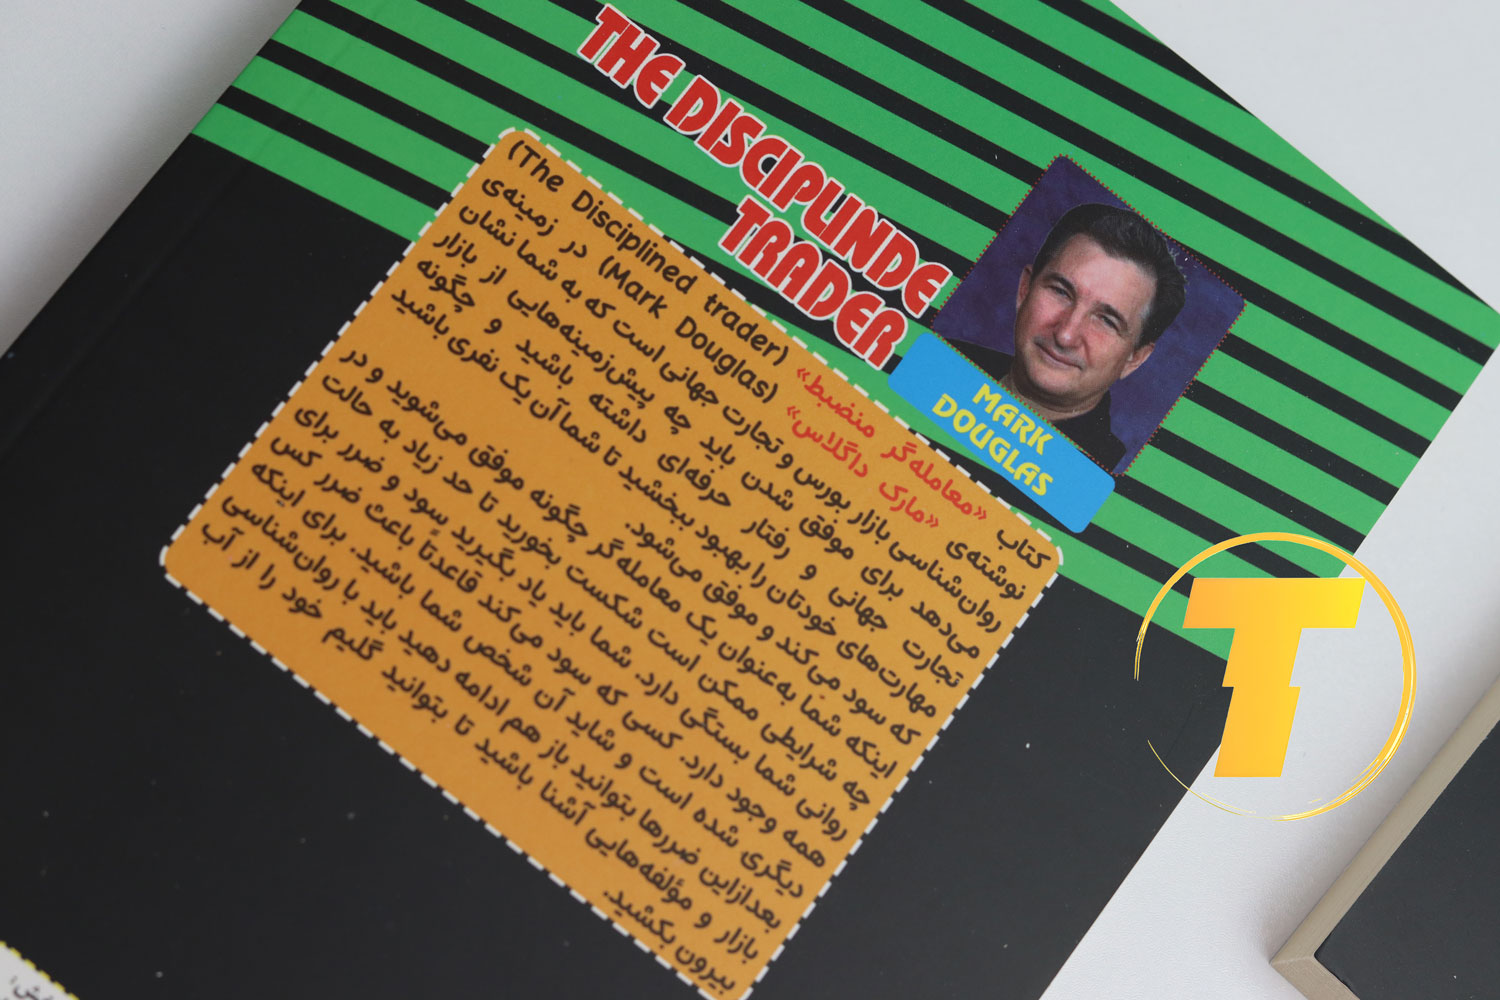 THE DISCIPLINDE
TRADER
MARK
DOUGLAS
کتاب «معامله‌گر منضبط» (The Disciplined trader)
نوشته‌ی «مارک داگلاس» (Mark Douglas) در زمینه‌ی
روان‌شناسی بازار بورس و تجارت جهانی است که به شما نشان
می‌دهد برای موفق شدن باید چه پیش‌زمینه‌هایی از بازار
تجارت جهانی و رفتار حرفه‌ای داشته باشید و چگونه
مهارت‌های خودتان را بهبود ببخشید تا شما آن یک نفری باشید
که سود می‌کند و موفق می‌شود.
اینکه شما به‌عنوان یک معامله‌گر چگونه موفق می‌شوید و در
چه شرایطی ممکن است شکست بخورید تا حد زیاد به حالت
روانی شما بستگی دارد. شما باید یاد بگیرید سود و ضرر برای
همه وجود دارد. کسی که سود می‌کند قاعدتاً باعث ضرر کس
دیگری شده است و شاید آن شخص شما باشید. برای اینکه
بعدازاین ضررها بتوانید باز هم ادامه دهید باید با روان‌شناسی
بازار و مؤلفه‌هایی آشنا باشید تا بتوانید گلیم خود را از آب
بیرون بکشید.
T